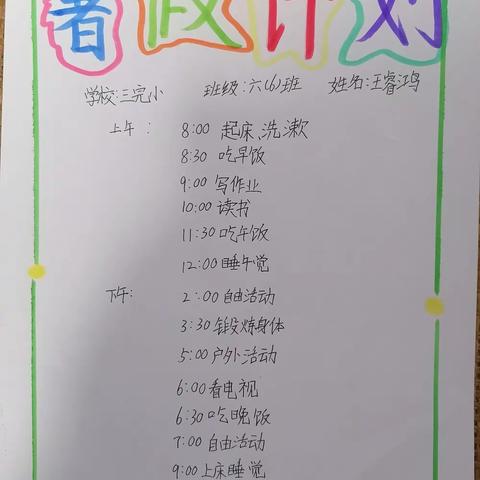 暑假计划
学校:三完小 班级:六(6)班 姓名:王睿鸿
上午: 8:00 起床、洗漱
8:30 吃早饭
9:00 写作业
10:00 读书
11:30 吃午饭
12:00 睡午觉
下午: 2:00 自由活动
3:30 锻炼身体
5:00 户外活动
6:00 看电视
6:30 吃晚饭
7:00 自由活动
9:00 上床睡觉